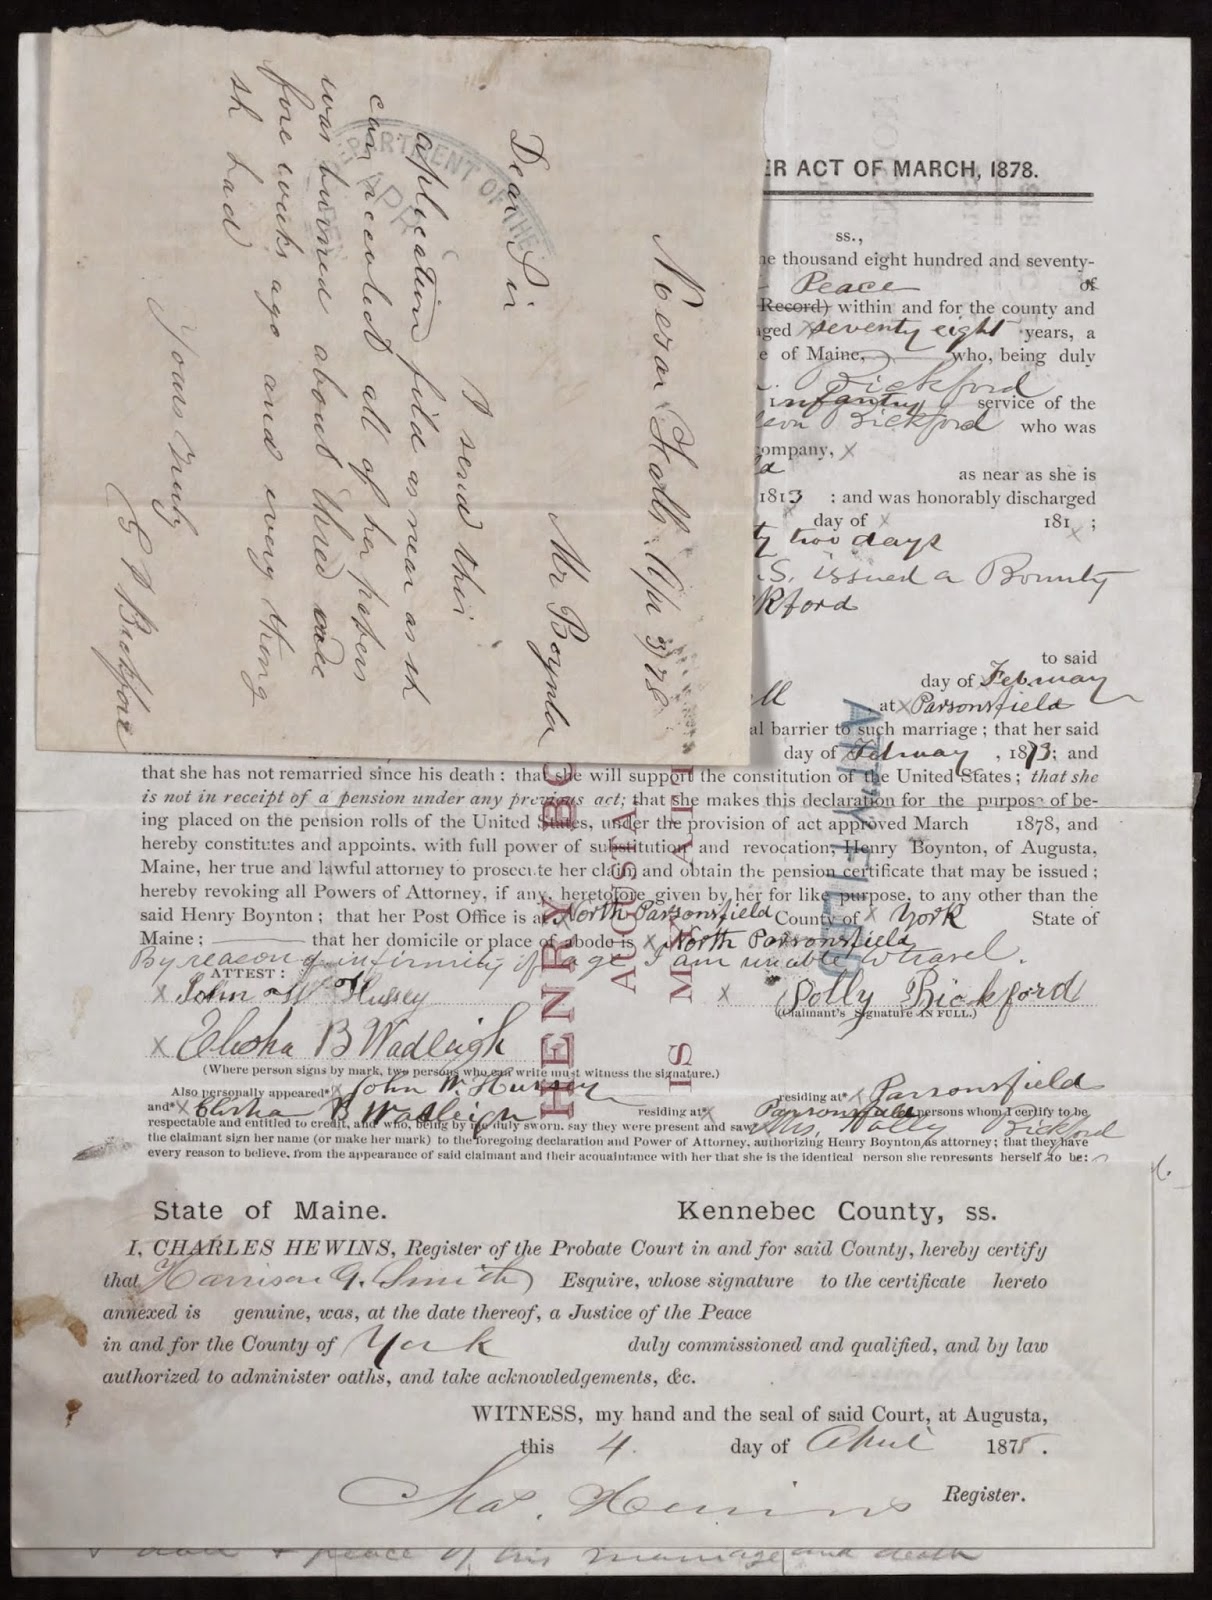 Kezar Falls Apr 3/78
Mr Boynton
Dear Sir
I send this
aplication fild as near as sh
can recolect all of her papers
was burned about three
fore weeks ago and every thing
sh had
Yours truly
Bickford
DEPARTMENT OF THE
ER ACT OF MARCH, 1878.
ss.,
ne thousand eight hundred and seventy-
Peace of
Record) within and for the county and
aged x seventy eight years, a
e of Maine, who, being duly
Bickford
infantry service of the
Bickford who was
ompany, x
as near as she is
1813 : and was honorably discharged
day of x 181x ;
ty two days
.S. issued a Bounty
ckford
to said
day of February
ll, at x Parsonsfield
al barrier to such marriage ; that her said
day of February , 1873; and
that she has not remarried since his death ; that she will support the constitution of the United States ; that she
is not in receipt of a pension under any previous act; that she makes this declaration for the purpose of be-
ing placed on the pension rolls of the United States, under the provision of act approved March 1878, and
hereby constitutes and appoints, with full power of substitution and revocation, Henry Boynton, of Augusta,
Maine, her true and lawful attorney to prosecute her claim and obtain the pension certificate that may be issued ;
hereby revoking all Powers of Attorney, if any, heretofore given by her for like purpose, to any other than the
said Henry Boynton ; that her Post Office is at North Parsonsfield County of x York State of
Maine ; that her domicile or place of abode is x North Parsonsfield
By reason of infirmity of age I am unable to travel.
ATTEST :
x John W Hussey x Polly Bickford
(Claimant's Signature IN FULL.)
x Elisha B Wadleigh
(Where person signs by mark, two persons who can write must witness the signature.)
Also personally appeared* x John W. Hussey residing at* x Parsonsfield
and* x Elisha B Wadleigh residing at* x Parsonsfield persons whom I certify to be
respectable and entitled to credit, and who, being by me duly sworn, say they were present and saw Mrs. Polly Bickford
the claimant sign her name (or make her mark) to the foregoing declaration and Power of Attorney, authorizing Henry Boynton as attorney; that they have
every reason to believe, from the appearance of said claimant and their acquaintance with her that she is the identical person she represents herself to be;
HENRY BO
AUGUSTA
IS MY ATT
ATTY FILED
State of Maine. Kennebec County, ss.
I, CHARLES HEWINS, Register of the Probate Court in and for said County, hereby certify
that Harrison G. Smith Esquire, whose signature to the certificate hereto
annexed is genuine, was, at the date thereof, a Justice of the Peace
in and for the County of York duly commissioned and qualified, and by law
authorized to administer oaths, and take acknowledgements, &c.
WITNESS, my hand and the seal of said Court, at Augusta,
this 4. day of April 1878.
Chas. Hewins Register.
& place of his marriage and death